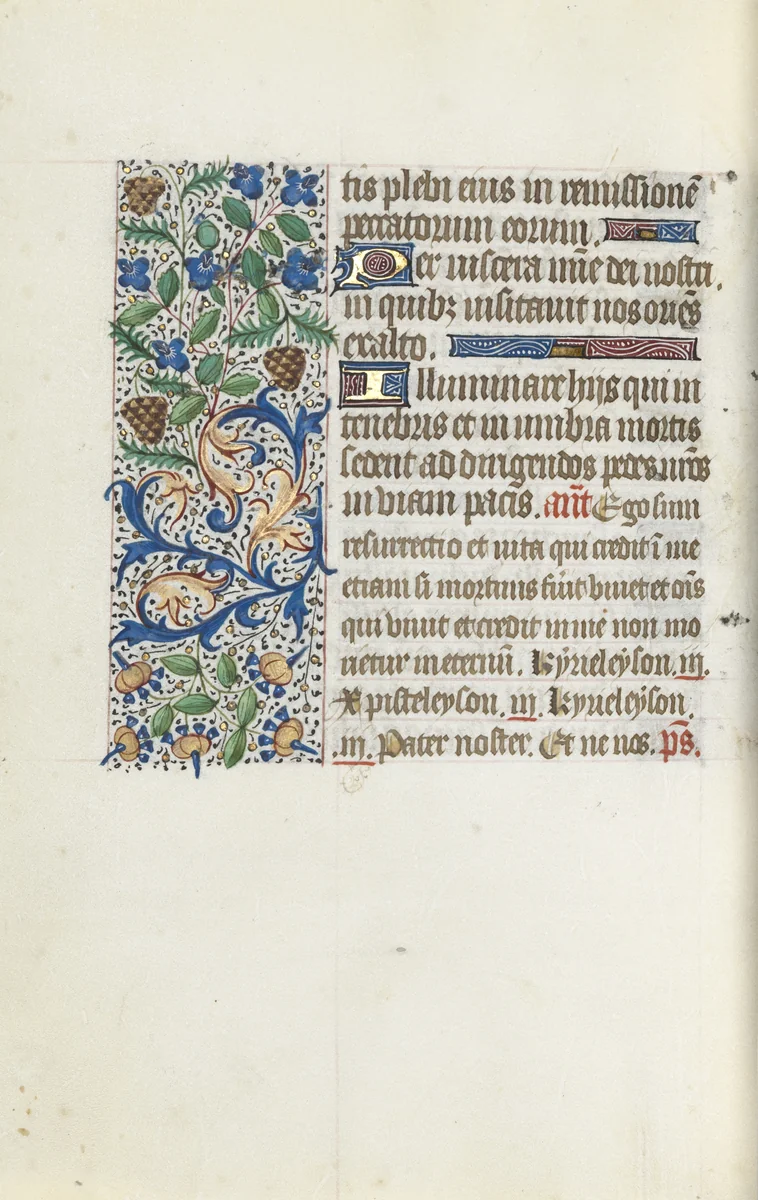 tis plebi eius in remissionē
peccatorum eorum.
Per viscera mīe dei nostri.
in quibꝫ visitauit nos oriēs
exalto.
Illuminare hijs qui in
tenebris et in umbra mortis
sedent ad dirigendos pedes nr̄os
in viam pacis. an̄t Ego sum
resurrectio et vita qui credit ī me
etiam si mortuus fūit viuet et oīs
qui viuit et credit in me non mo
rietur in eternū. kyrieleyson .iij.
Xpisteleyson .iij. kyrieleyson.
.iij. Pater noster. Et ne nos. p̄s.